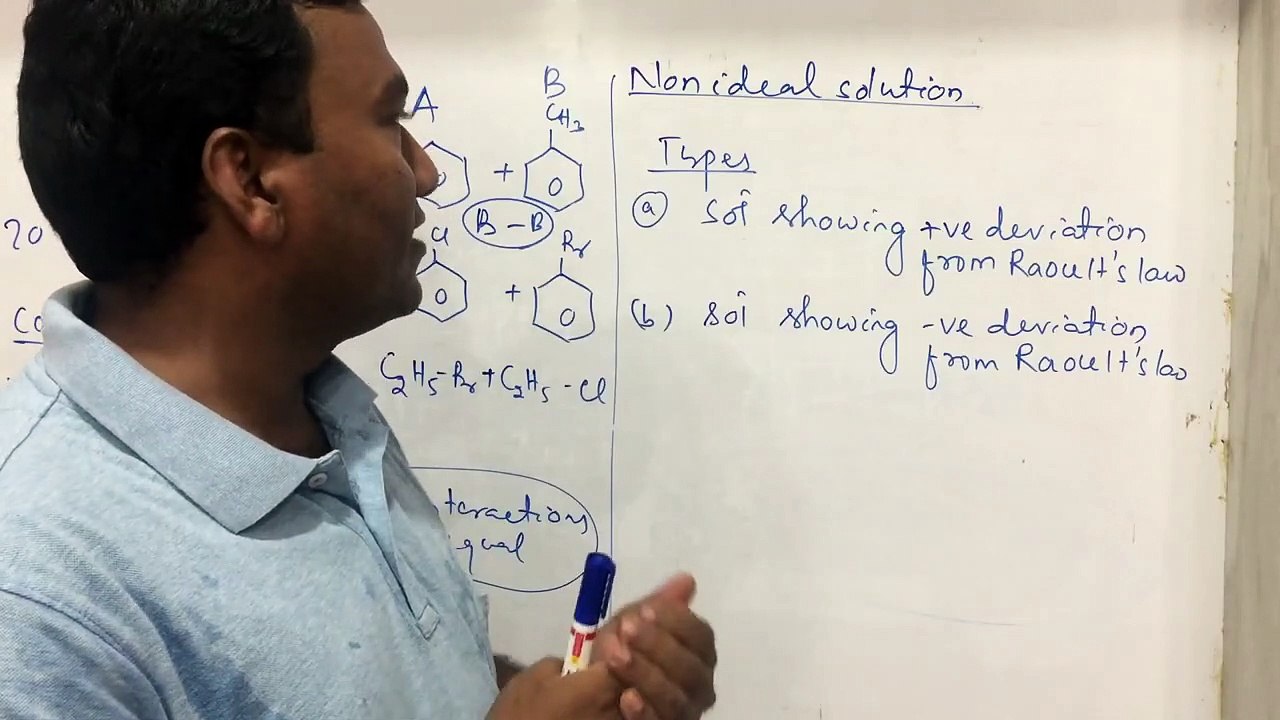 A
B
CH3
+
B - B
Cl
Br
+
C2H5-Br + C2H5-Cl
Non ideal solution
Types
(a) sol showing +ve deviation
from Raoult's law
(b) sol showing -ve deviation
from Raoult's law
20